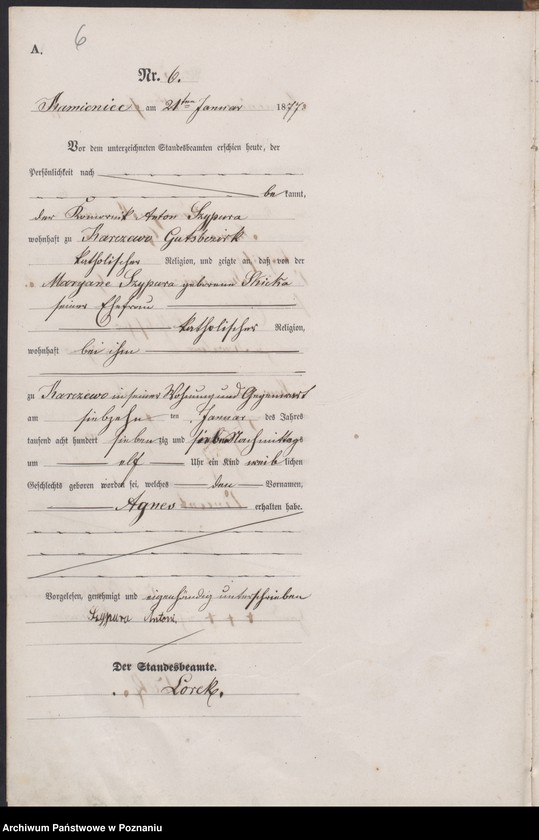 6
A.
Nr. 6.
Kamieniec am 21ten Januar 1877
Vor dem unterzeichneten Standesbeamten erschien heute, der
Persönlichkeit nach
be kannt,
der Komornik Anton Szypura
wohnhaft zu Karczewo Gutsbezirk
katholischer Religion, und zeigte an, daß von der
Maryane Szypura geborenen
seiner Ehefrau
katholischer Religion,
wohnhaft bei ihm
zu Karczewo in seiner Wohnung und Gegenwart
am siebzehn ten Januar des Jahres
tausend acht hundert sieben zig und sieben Nachmittags
um elf Uhr ein Kind weib lichen
Geschlechts geboren worden sei, welches den Vornamen,
Agnes erhalten habe.
Vorgelesen, genehmigt und eigenhändig unterschrieben
Szypura Antoni
Der Standesbeamte.
Lorek.
Archiwum Państwowe w Poznaniu